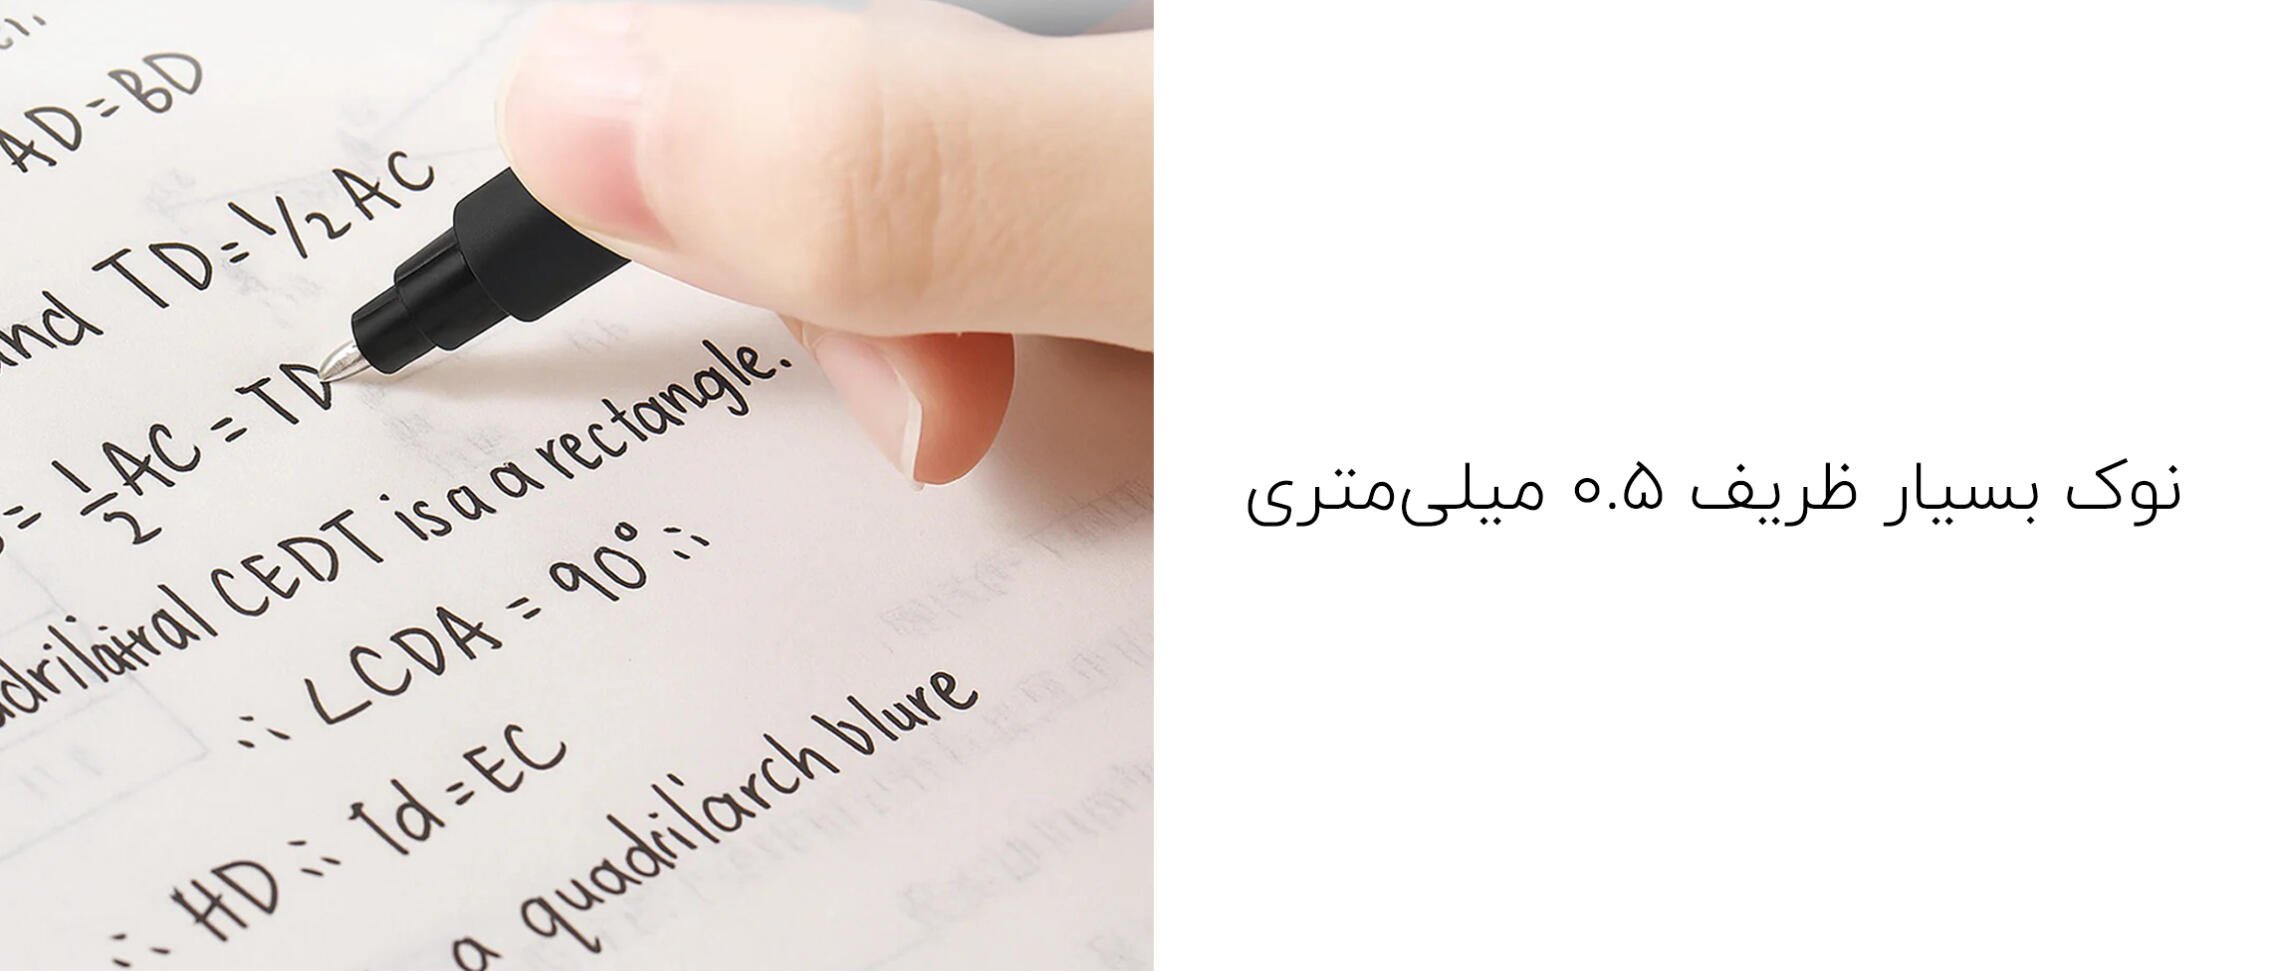 AD=BD
and TD=1/2AC
= 1/2 AC = TD
CEDT is a a rectangle.
∴ ∠CDA = 90° ∴
∴ HD ∴ Td=EC
a quadrilarch blure
نوک بسیار ظریف ۰.۵ میلی‌متری